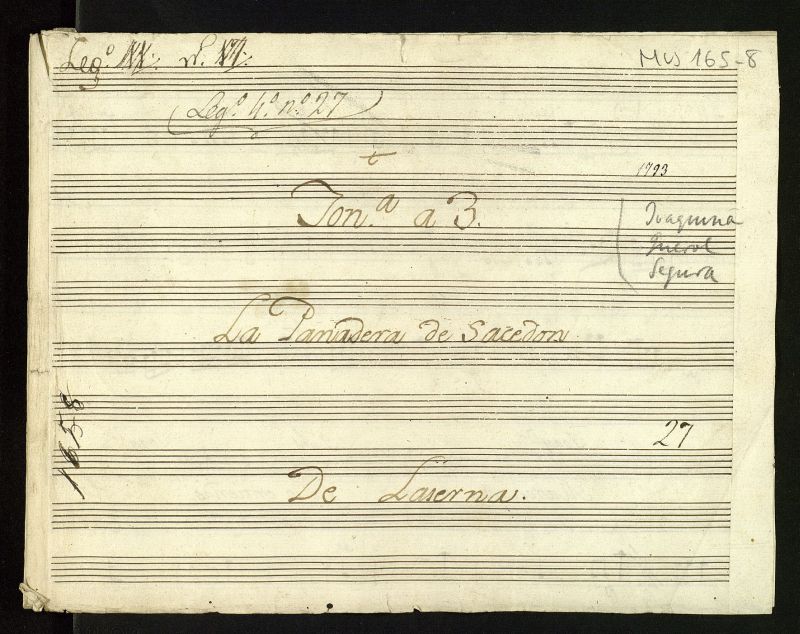 Leg.º n.
MUS 165-8
Leg.º 4.º n.º 27
t
1793
Ton.ª a 3.
Joaquina
Querol
Segura
La Panadera de Sacedon
1658
27
De Laserna.